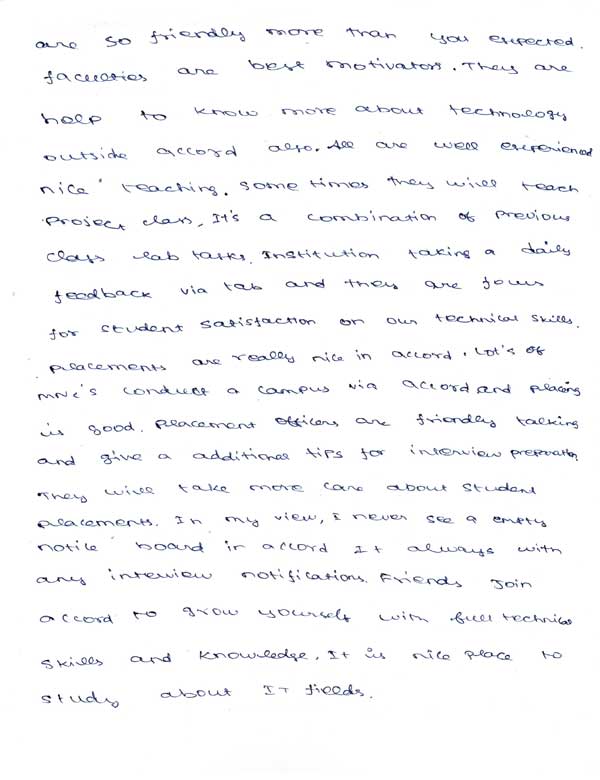 are so friendly more than you expected.
faculties are best motivators. They are
help to know more about technology
outside accord also. All are well experienced
nice teaching. Some times they will teach
project class, It's a combination of previous
class lab tasks. Institution taking a daily
feedback via tab and they are focus
for student satisfaction on our technical skills.
placements are really nice in accord. Lot's of
MNC's conduct a campus via accord and placing
is good. Placement officers are friendly talking
and give a additional tips for interview preparation
They will take more care about student
placements. In my view, I never see a empty
notice board in accord It always with
any interview notifications. Friends Join
accord to grow yourself with full technical
skills and knowledge. It is nice place to
study about IT fields.